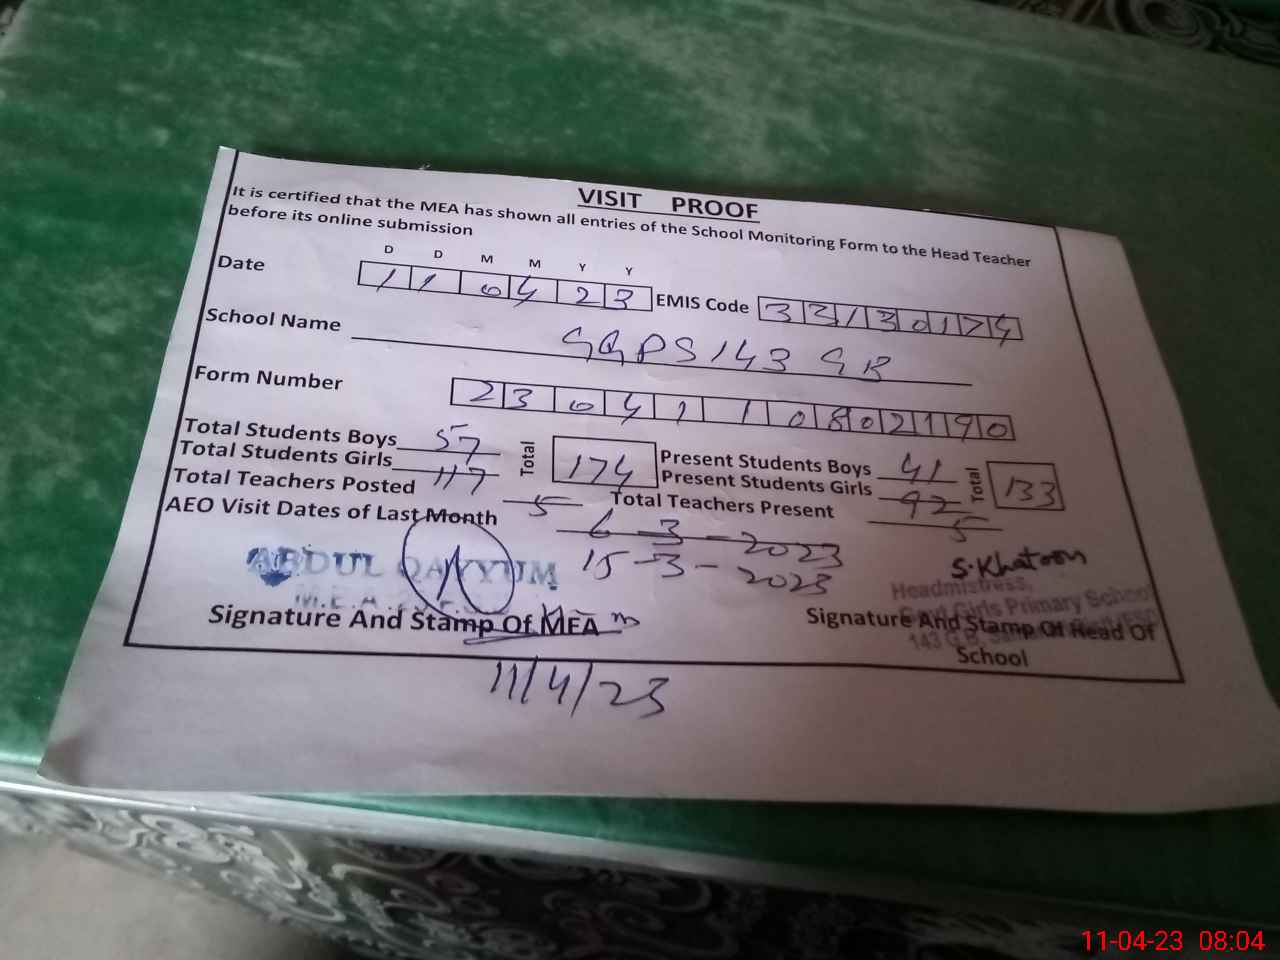 VISIT PROOF
It is certified that the MEA has shown all entries of the School Monitoring Form to the Head Teacher
before its online submission
D D M M Y Y
Date 11 04 23 EMIS Code 33130174
School Name GGPS 143 GB
Form Number 2304110802190
Total Students Boys 57 Total 174 Present Students Boys 41 Total 133
Total Students Girls 117 Present Students Girls 92
Total Teachers Posted 5 Total Teachers Present 5
AEO Visit Dates of Last Month 6-3-2023
15-3-2023
ABDUL QAYYUM
M.E.A
S.Khatoon
Headmistress,
Govt Girls Primary School
143 G.B.
Signature And Stamp Of MEA
Signature And Stamp Of Head Of
School
11/4/23
11-04-23 08:04